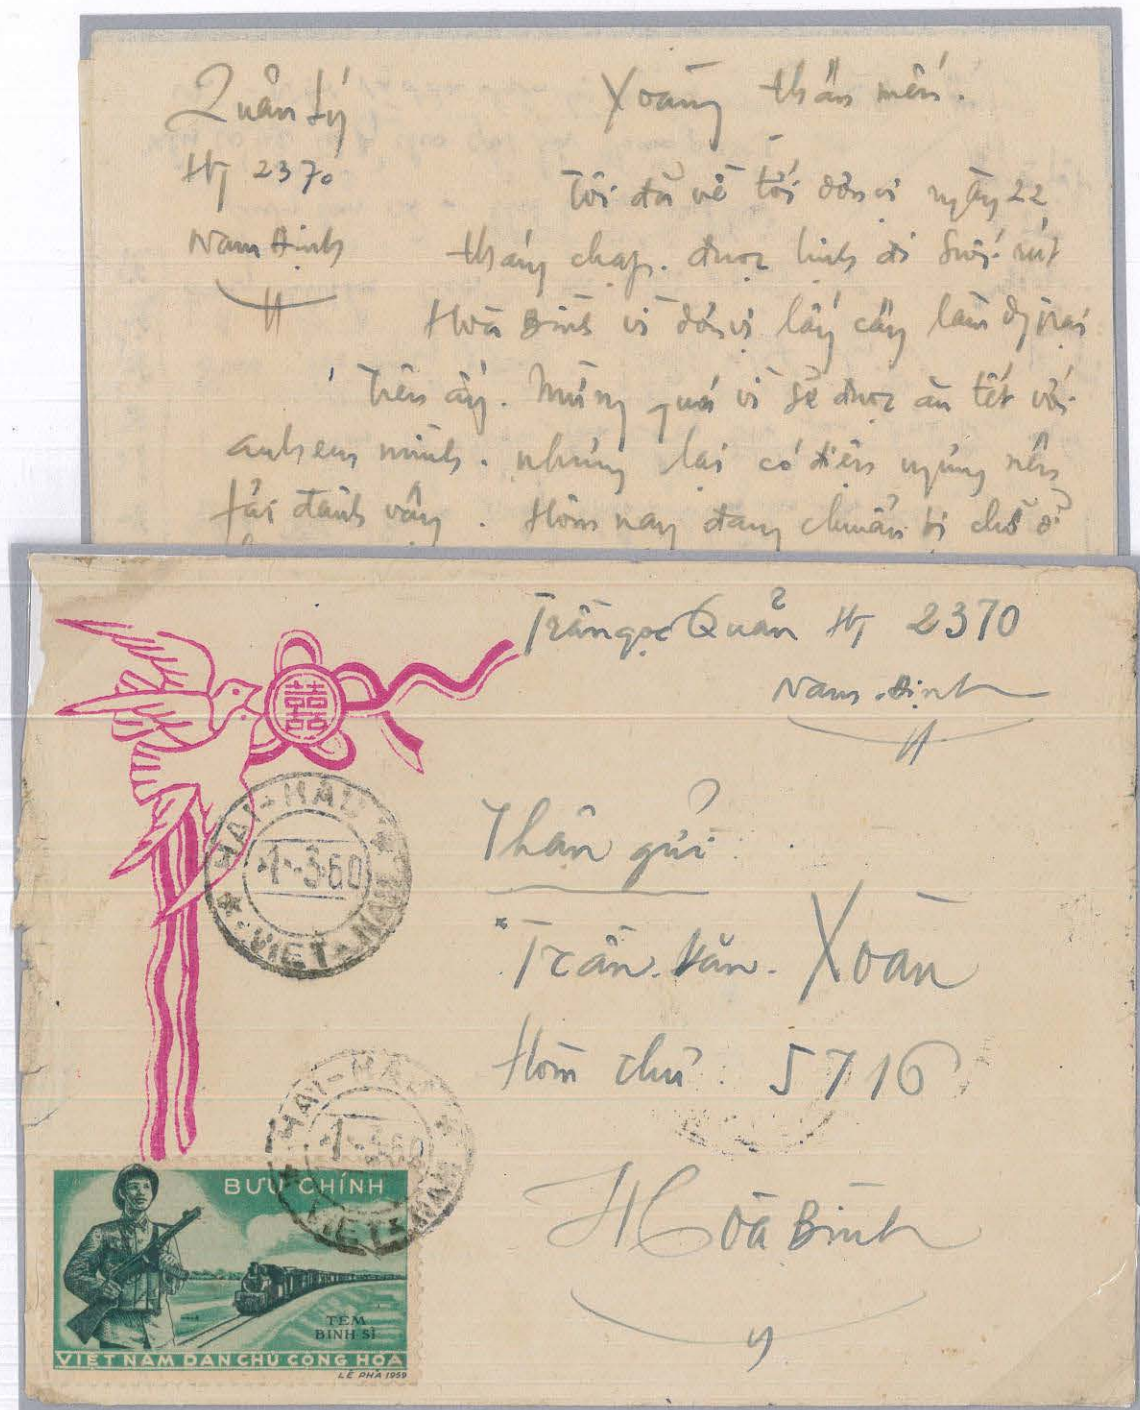 Quân Lý
HT 2370
Nam Định
Xoàng thân mến!
Tôi đã về tới đơn vị ngày 22
tháng chạp. được lệnh đi Suối rút
Hoà Bình vì đơn vị lấy cây làm
trên ấy. Mừng quá vì sẽ được ăn tết với
anh em mình. nhưng lại có điện ngừng nên
tôi đành vậy. Hôm nay đang chuẩn bị chỗ ở
Trần ngọc Quản HT 2370
Nam Định
Thân gửi
Trần Văn Xoàn
Hòm thư: 5716
Hoà Bình
囍
HAI-HAU
-1.-3.60
VIET-NAM
HAI-HAU
-1.-3.60
VIET-NAM
BƯU CHÍNH
TEM
BINH SĨ
VIỆT NAM DÂN CHỦ CỘNG HÒA
LÊ PHẢ 1959